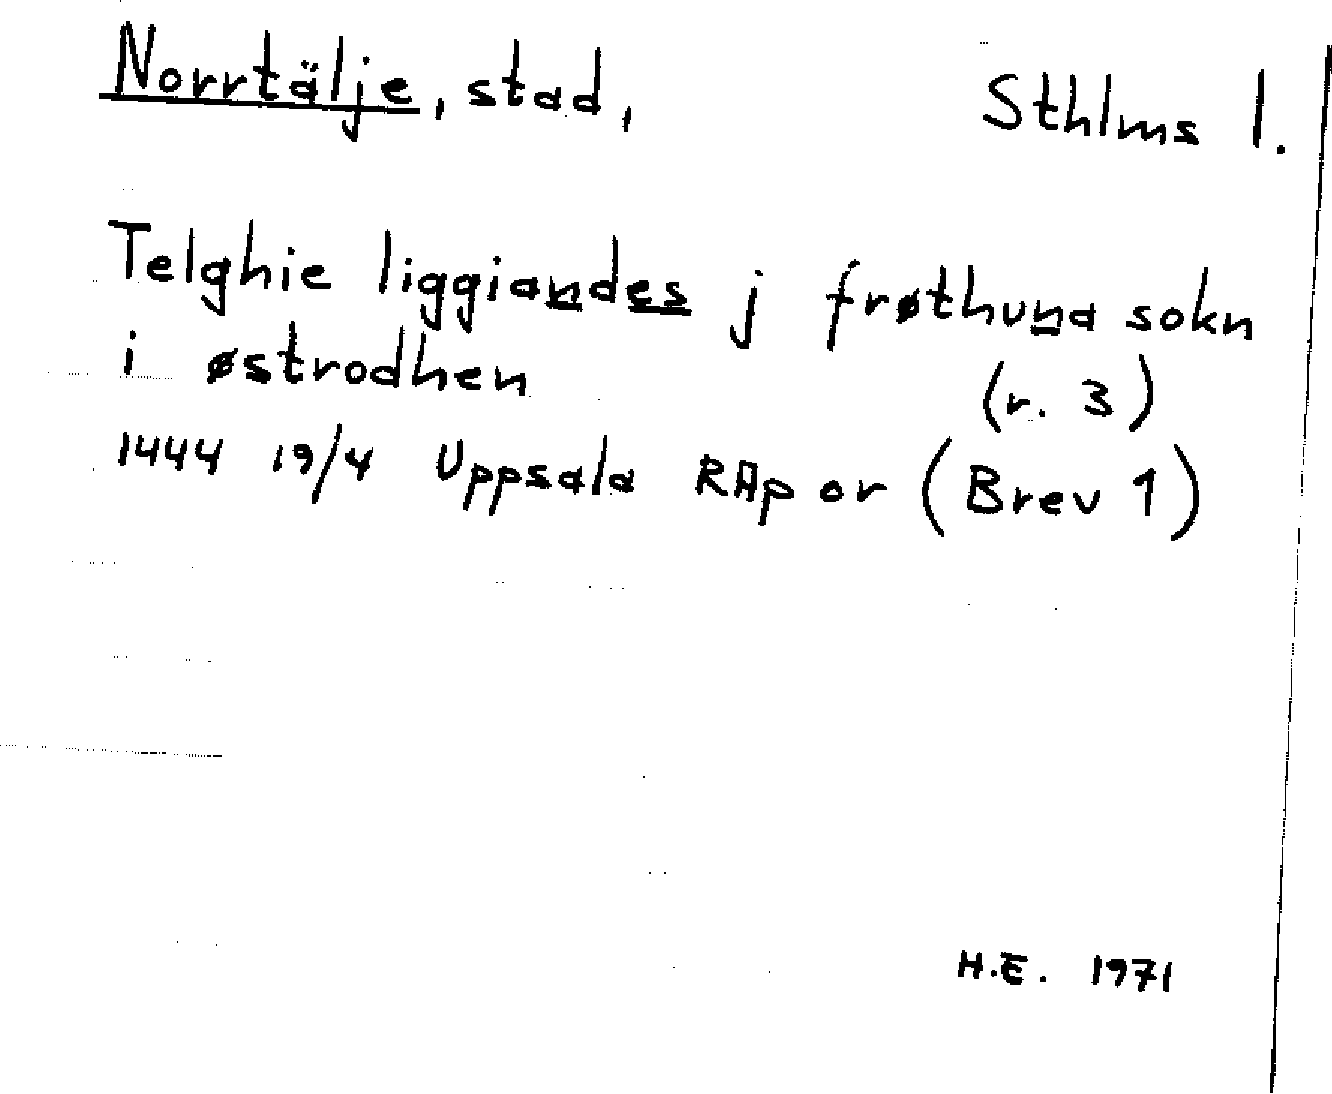 Norrtälje, stad, Sthlms l.
Telghie liggiandes j frøthuna sokn
i østrodhen (r. 3)
1444 19/4 Uppsala RAp or (Brev 1)
H.E. 1971